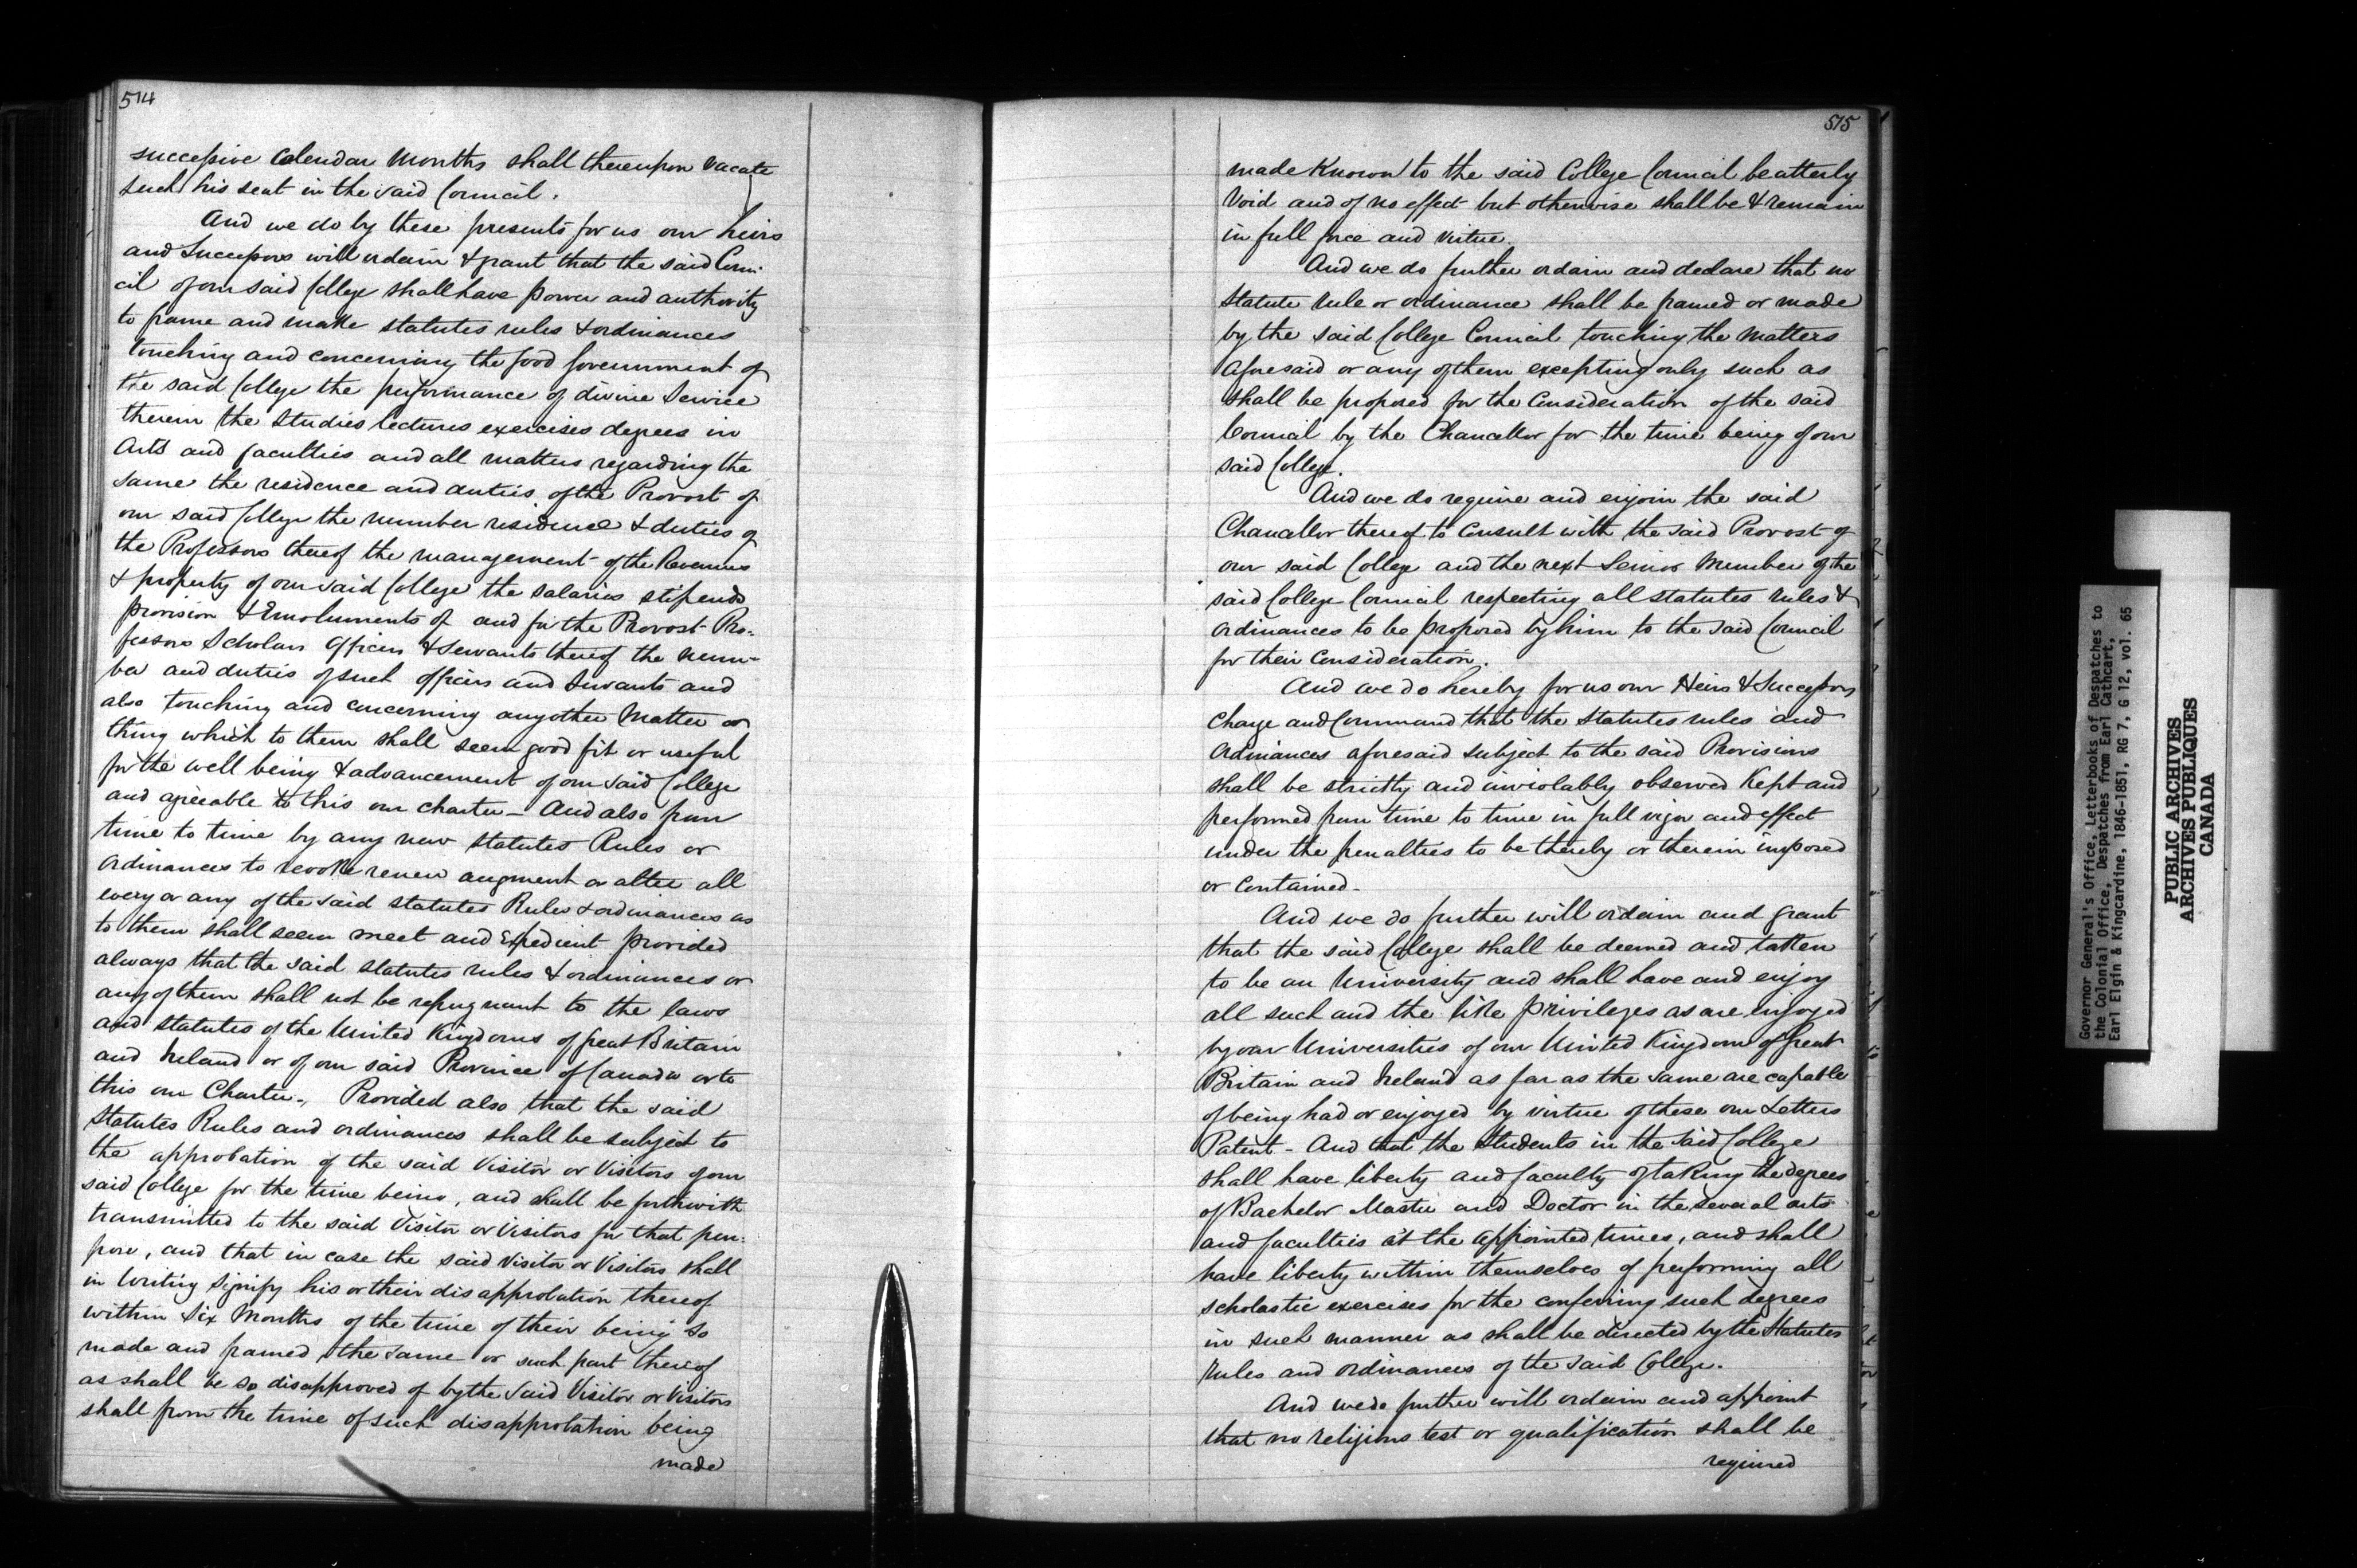 514
successive Calendar Months shall thereupon vacate
such his seat in the said Council.
And we do by these presents for us our heirs
and Successors will ordain & grant that the said Coun-
cil of our said College shall have power and authority
to frame and make statutes rules & ordinances
touching and concerning the good government of
the said College the performance of divine Service
therein the Studies lectures exercises degrees in
Arts and faculties and all matters regarding the
same the residence and duties of the Provost of
our said College the number residence & duties of
the Professors thereof the management of the Revenues
& property of our said College the salaries stipends
provision & Emoluments of and for the Provost Pro-
fessors Scholars Officers & Servants thereof the num-
ber and duties of such officers and servants and
also touching and concerning any other Matter or
thing which to them shall seem good fit or useful
for the well being & advancement of our said College
and agreeable to this our charter - And also from
time to time by any new statutes Rules or
Ordinances to revoke renew augment or alter all
every or any of the said statutes Rules & ordinances as
to them shall seem meet and Expedient provided
always that the said statutes rules & ordinances or
any of them shall not be repugnant to the laws
and statutes of the United Kingdoms of great Britain
and Ireland or of our said Province of Canada or to
this our Charter., Provided also that the said
Statutes Rules and ordinances shall be subject to
the approbation of the said Visitor or Visitors of our
said College for the time being, and shall be forthwith
transmitted to the said Visitor or Visitors for that pur-
pose, and that in case the said Visitor or Visitors shall
in Writing signify his or their disapprobation thereof
within Six Months of the time of their being so
made and framed, the same or such part thereof
as shall be so disapproved of by the said Visitor or Visitors
shall from the time of such disapprobation being
made
515
made Known to the said College Council be utterly
Void and of no effect but otherwise shall be & remain
in full force and virtue.
And we do further ordain and declare that no
statute rule or ordinance shall be framed or made
by the said College Council touching the Matters
aforesaid or any of them excepting only such as
shall be proposed for the Consideration of the said
Council by the Chancellor for the time being of our
said College.
And we do require and enjoin the said
Chancellor thereof to Consult with the said Provost of
our said College and the next Senior Member of the
said College Council respecting all statutes rules &
Ordinances to be proposed by him to the said Council
for their Consideration.
And we do hereby for us our Heirs & Successors
Charge and Command that the Statutes rules and
Ordinances aforesaid subject to the said Provisions
shall be strictly and inviolably observed Kept and
performed from time to time in full vigor and effect
under the penalties to be thereby or therein imposed
or Contained -
And we do further will ordain and grant
that the said College shall be deemed and taken
to be an University and shall have and enjoy
all such and the like privileges as are enjoyed
by our Universities of our United Kingdom of Great
Britain and Ireland as far as the same are capable
of being had or enjoyed by virtue of these our Letters
Patent - And that the Students in the said College
shall have liberty and faculty of taking the degrees
of Bachelor Master and Doctor in the several arts
and faculties at the appointed times, and shall
have liberty within themselves of performing all
scholastic exercises for the conferring such degrees
in such manner as shall be directed by the Statutes
Rules and ordinances of the said College.
And we do further will ordain and appoint
that no religious test or qualification shall be
required
Governor General's Office, Letterbooks of Despatches to
the Colonial Office, Despatches from Earl Cathcart,
Earl Elgin & Kingcardine, 1846-1851, RG 7, G 12, vol. 65
PUBLIC ARCHIVES
ARCHIVES PUBLIQUES
CANADA